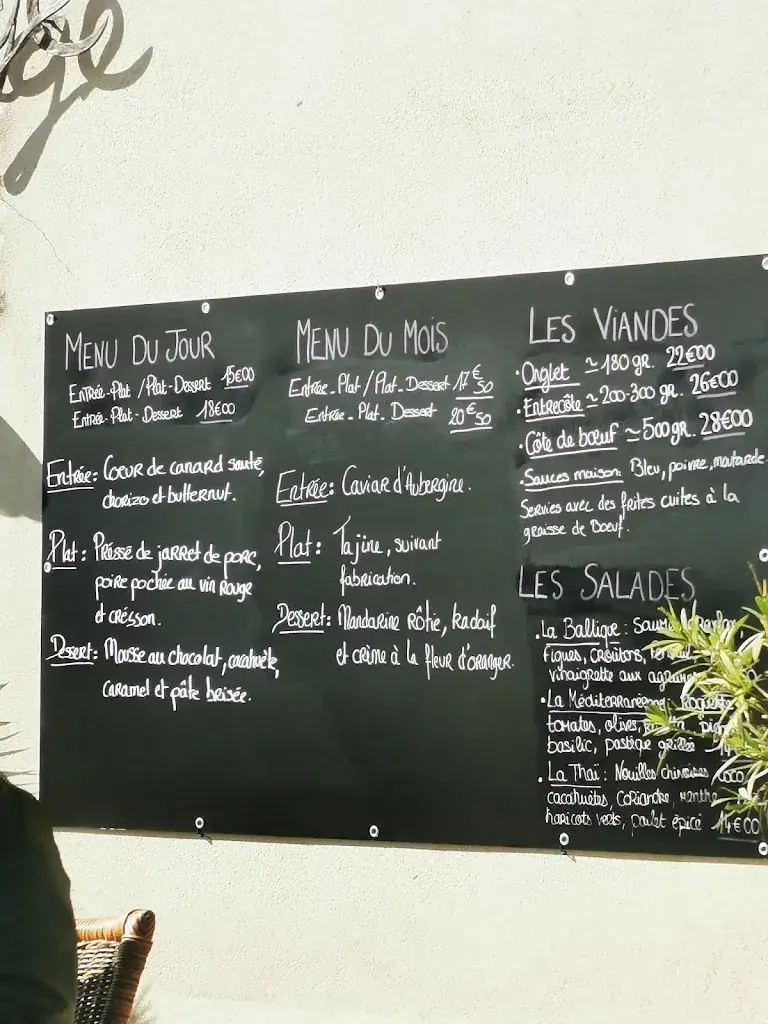 MENU DU JOUR
Entrée-Plat / Plat-Dessert 15€00
Entrée-Plat-Dessert 18€00
Entrée: Coeur de canard sauté,
chorizo et butternut.
Plat: Pressé de jarret de porc,
poire pochée au vin rouge
et cresson.
Dessert: Mousse au chocolat, cacahuète,
caramel et pâte brisée.
MENU DU MOIS
Entrée-Plat / Plat-Dessert 17€50
Entrée-Plat-Dessert 20€50
Entrée: Caviar d'Aubergine.
Plat: Tajine, suivant
fabrication.
Dessert: Mandarine rôtie, kadaïf
et crème à la fleur d'oranger.
LES VIANDES
·Onglet ≃180gr. 22€00
·Entrecôte ≃200-300gr. 26€00
·Côte de boeuf ≃500gr. 28€00
·Sauces maison: Bleu, poivre, moutarde.
Servies avec des frites cuites à la
graisse de Boeuf.
LES SALADES
·La Baltique:
Figues, croûtons,
vinaigrette aux
·La Méditerranéenne: Roquette
tomates, olives,
basilic, pastèque grillée
·La Thaï: Nouilles chinoises, coco
cacahuètes, coriandre, menthe
haricots verts, poulet épicé 14€00